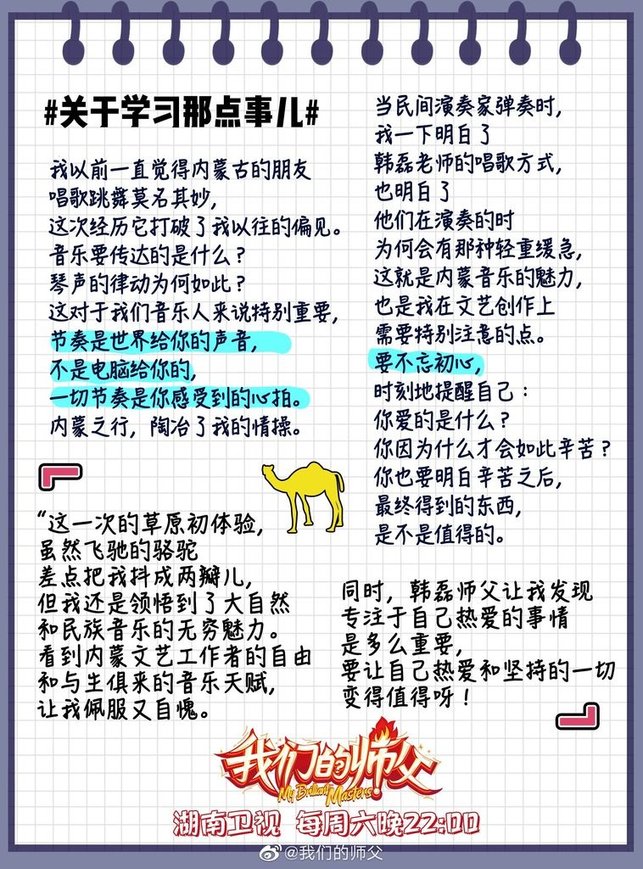 #关于学习那点事儿#
我以前一直觉得内蒙古的朋友
唱歌跳舞莫名其妙,
这次经历它打破了我以往的偏见。
音乐要传达的是什么?
琴声的律动为何如此?
这对于我们音乐人来说特别重要,
节奏是世界给你的声音,
不是电脑给你的,
一切节奏是你感受到的心拍。
内蒙之行,陶冶了我的情操。
当民间演奏家弹奏时,
我一下明白了
韩磊老师的唱歌方式,
也明白了
他们在演奏的时
为何会有那种轻重缓急,
这就是内蒙音乐的魅力,
也是我在文艺创作上
需要特别注意的点。
要不忘初心,
时刻地提醒自己:
你爱的是什么?
你因为什么才会如此辛苦?
你也要明白辛苦之后,
最终得到的东西,
是不是值得的。
“这一次的草原初体验,
虽然飞驰的骆驼
差点把我抖成两瓣儿,
但我还是领悟到了大自然
和民族音乐的无穷魅力。
看到内蒙文艺工作者的自由
和与生俱来的音乐天赋,
让我佩服又自愧。
同时,韩磊师父让我发现
专注于自己热爱的事情
是多么重要,
要让自己热爱和坚持的一切
变得值得呀!
我们的师父
My Brilliant Masters
湖南卫视 每周六晚22:00
@我们的师父